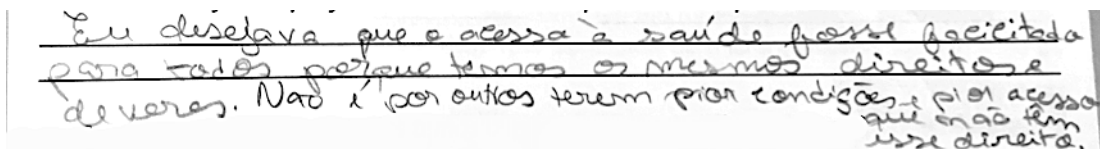 Eu desejava que o acesso à saúde fosse facilitado
para todos porque temos os mesmos direitos e
deveres. Não é por outros terem pior condições e pior acesso
que não têm
esse direito.